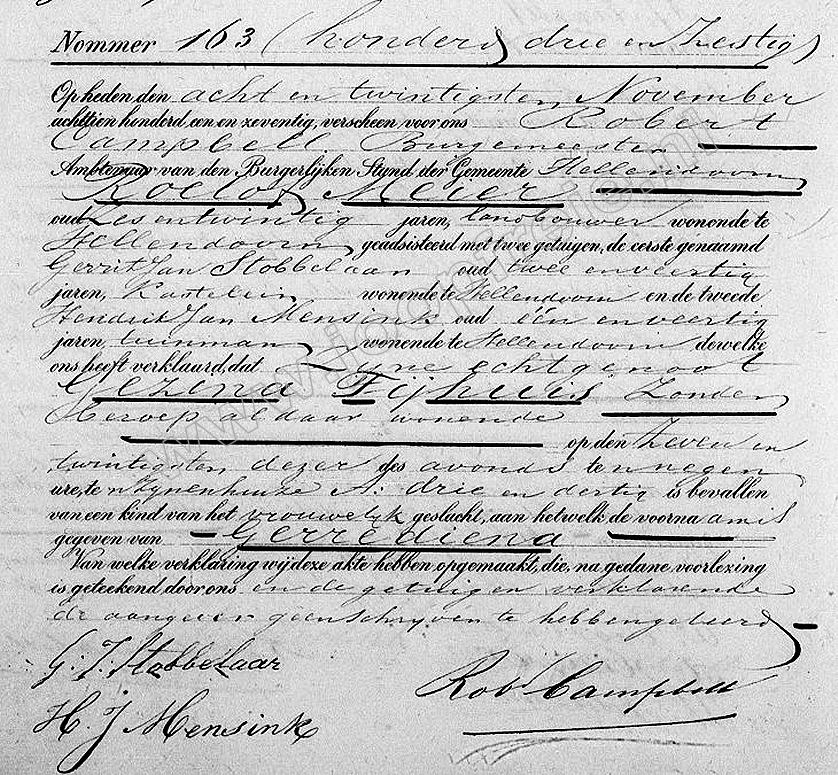 Nommer 163 (honderd drie en Zestig)
Op heden den acht en twintigsten November
achttien honderd, een en zeventig, verscheen voor ons Robert
Campbell Burgemeester
Ambtenaar van den Burgerlijken Stand der Gemeente Hellendoorn
Roelof Meier
oud Zes en twintig jaren, landbouwer wonende te
Hellendoorn geadsisteerd met twee getuigen, de eerste genaamd
Gerrit Jan Stobbelaar oud twee en veertig
jaren, Kastelein wonende te Hellendoorn en de tweede
Hendrik Jan Mensink oud één en veertig
jaren, tuinman wonende te Hellendoorn dewelke
ons heeft verklaard, dat Zyne echtgenoot
Gezena Fijhuis Zonder
Beroep aldaar wonende
op den Zeven en
twintigsten dezer des avonds te negen
ure, te Zynenhuize A: drie en dertig is bevallen
van een kind van het vrouwelyk geslacht, aan hetwelk de voornaam is
gegeven van Gerrediena
Van welke verklaring wij deze akte hebben opgemaakt, die, na gedane voorlezing
is geteekend door ons en de getuigen verklarende
de aangever geen schryven te hebben geleerd
G. J. Stobbelaar
Rob Campbell
H. J Mensink